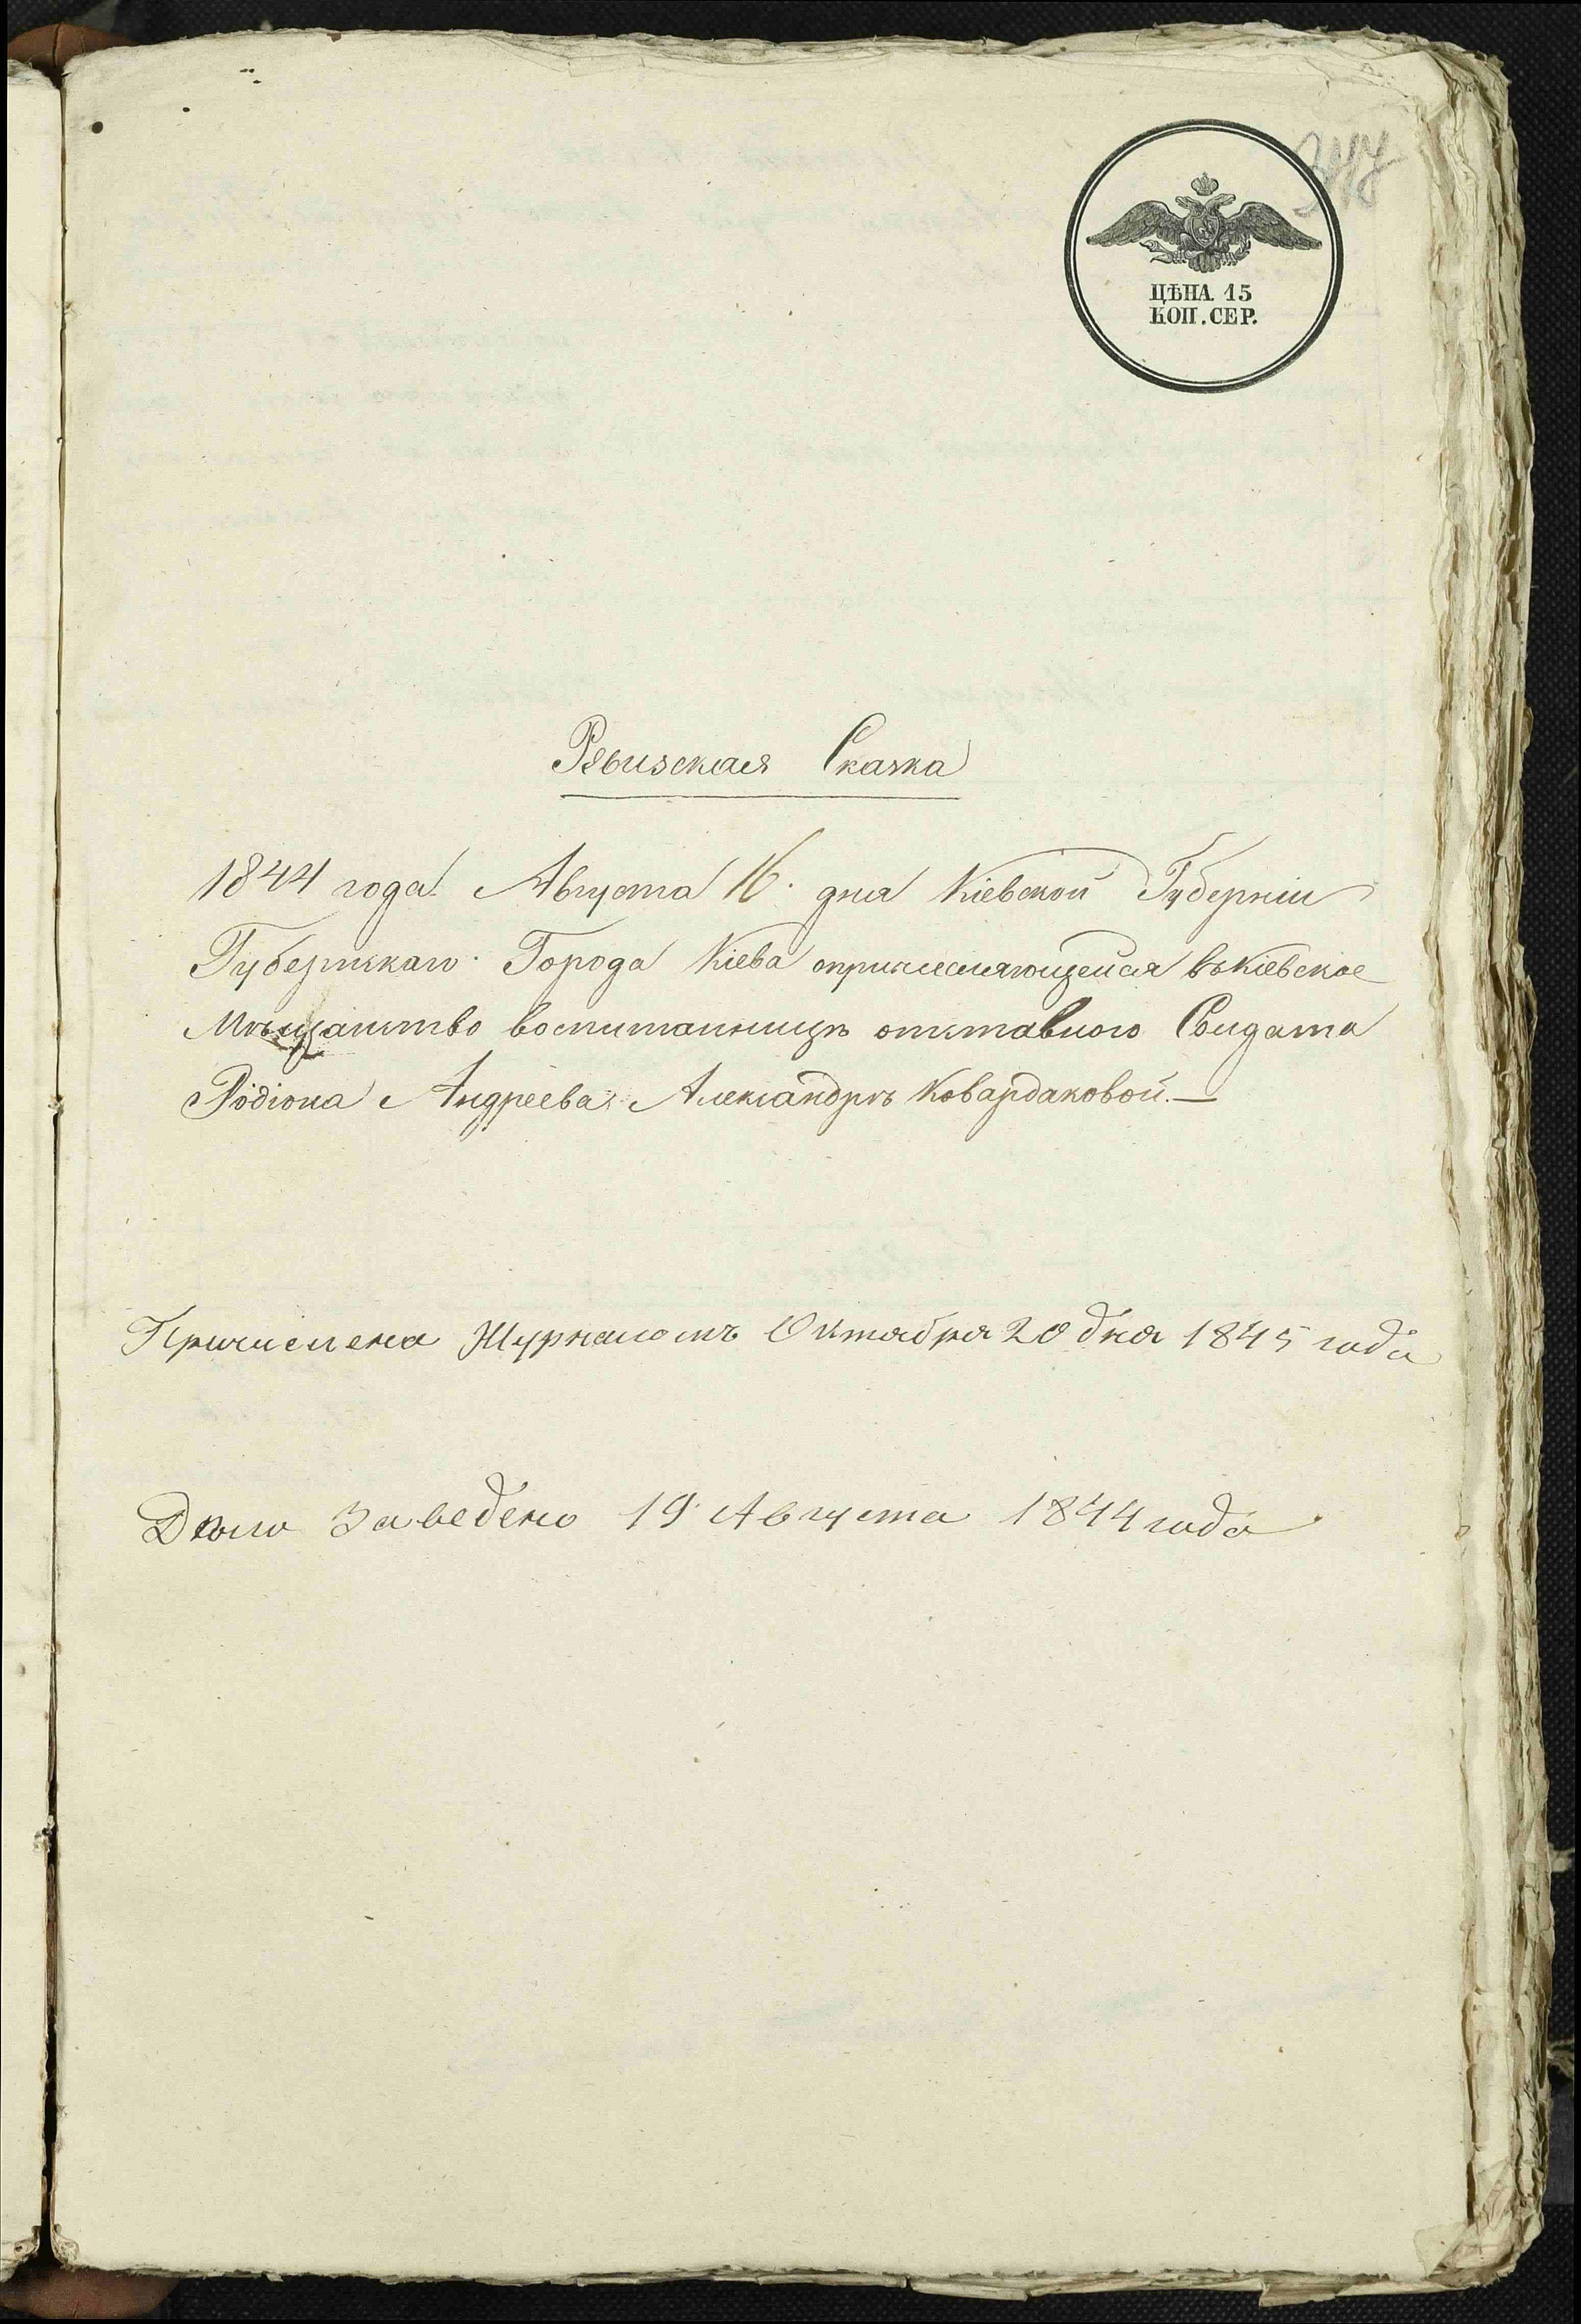 ЦѢНА 15
КОП. СЕР.
Ревизская Сказка
1844 года Августа 16. дня Кіевской Губерніи
Губернскаго Города Кіева опричисляющейся въ Кіевское
Мѣщанство воспитанницѣ отставного Солдата
Родіона Андреева Александрѣ Ковардаковой. —
Причислена Журналомъ Октября 20 дня 1845 года
Дѣло Заведено 19 Августа 1844 года